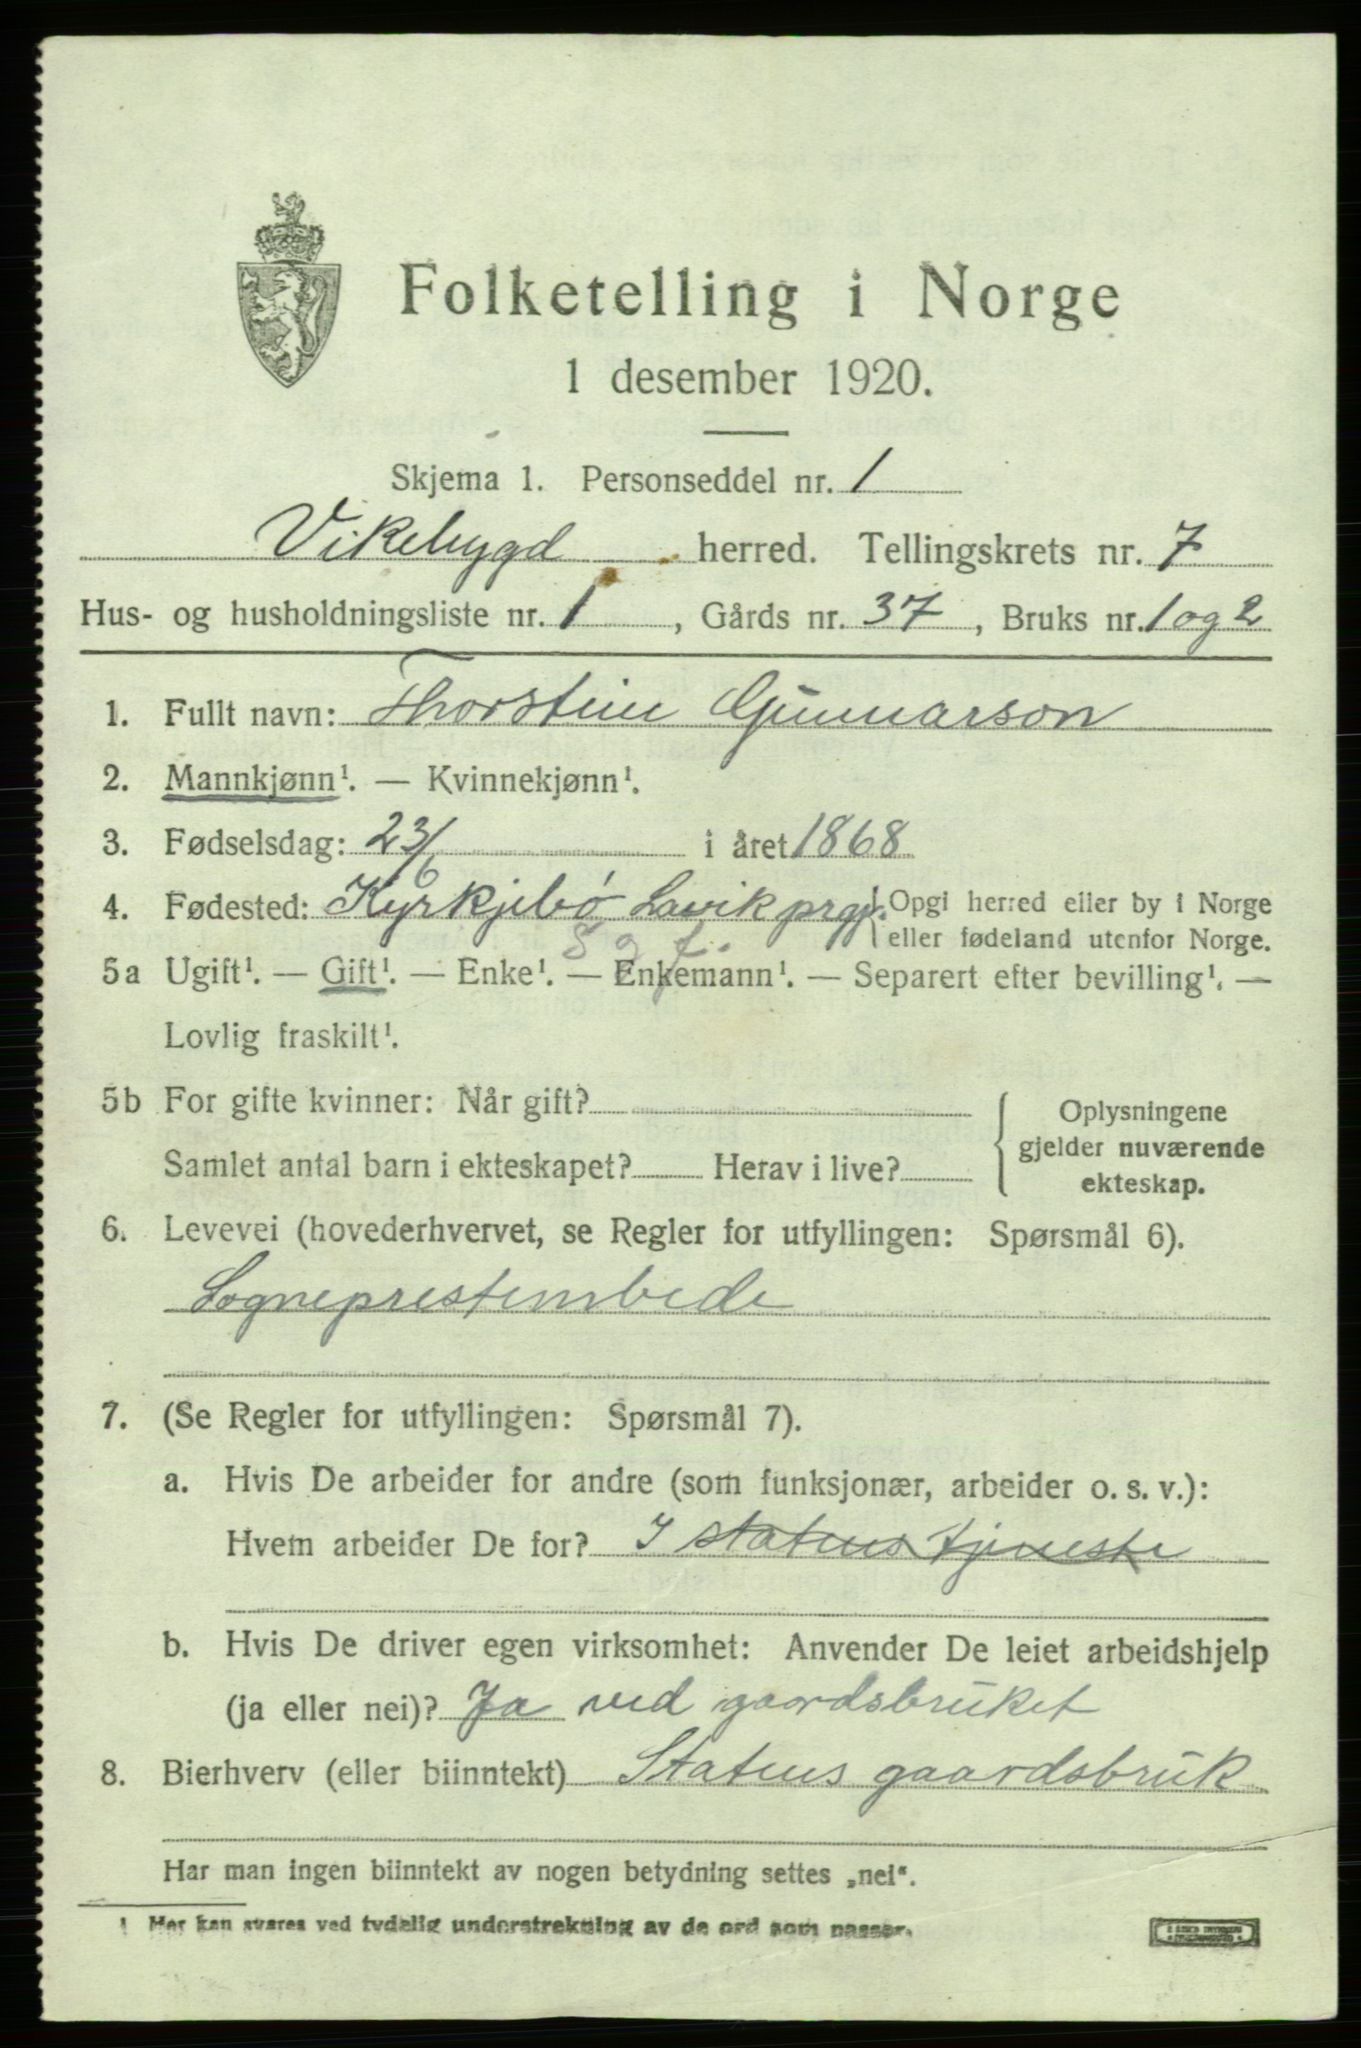 Folketelling i Norge
1 desember 1920.
Skjema 1. Personseddel nr. 1
Vikebygd herred. Tellingskrets nr. 7
Hus- og husholdningsliste nr. 1, Gårds nr. 37, Bruks nr. 1 og 2
1. Fullt navn: Thorstein Gunnarson
2. Mannkjønn¹. — Kvinnekjønn¹.
3. Fødselsdag: 23/6 i året 1868
4. Fødested: Kyrkjebø Lavik prgj. { Opgi herred eller by i Norge
eller fødeland utenfor Norge.
S. og f.
5a Ugift¹. — Gift¹. — Enke¹. — Enkemann¹. — Separert efter bevilling¹. —
Lovlig fraskilt¹.
5b For gifte kvinner: Når gift?
Samlet antal barn i ekteskapet? Herav i live?
{ Oplysningene
gjelder nuværende
ekteskap.
6. Levevei (hovederhvervet, se Regler for utfyllingen: Spørsmål 6).
Sogneprestembede
7. (Se Regler for utfyllingen: Spørsmål 7).
a. Hvis De arbeider for andre (som funksjonær, arbeider o. s. v.):
Hvem arbeider De for? I statens tjeneste
b. Hvis De driver egen virksomhet: Anvender De leiet arbeidshjelp
(ja eller nei)? Ja ved gaardsbruket
8. Bierhverv (eller biinntekt) Statens gaardsbruk
Har man ingen biinntekt av nogen betydning settes „nei“.
¹ Her kan svares ved tydelig understrekning av de ord som passer.